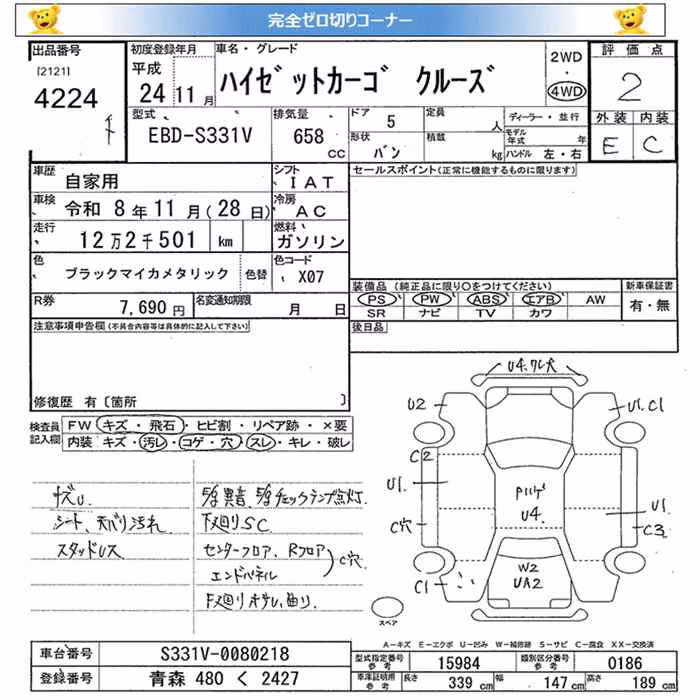 完全ゼロ切りコーナー
出品番号
[2121]
4224
初度登録年月
平成
24 11月
車名・グレード
ハイゼットカーゴ クルーズ
2WD
・
4WD
評価点
2
型式
EBD-S331V
排気量
658
CC
ドア
5
定員
人
ディーラー・並行
形状
バン
積載
kg
モデル年式
年
ハンドル 左・右
外装 内装
E C
車歴
自家用
シフト
IAT
セールスポイント(正常に機能するものに限ります)
車検
令和 8年11月(28日)
冷房
AC
走行
12万2千501 km
燃料
ガソリン
色
ブラックマイカメタリック
色替
色コード
X07
装備品 (純正品に限り○をつけてください)
新車保証書
PS PW ABS エアB AW
有・無
SR ナビ TV カワ
R券
7,690円
名変通知期限
月 日
後日品
注意事項申告欄(不具合内容等は具体的に記入して下さい)
修復歴 有〔箇所 〕
検査員
記入欄
FW キズ・飛石・ヒビ割・リペア跡・×要
内装 キズ・汚レ・コゲ・穴・スレ・キレ・破レ
キズU.
シート、天バリ汚れ
スタッドレス
E/g異音、E/gチェックランプ点灯.
下廻りSC
センターフロア、Rフロア
エンドパネル
C穴
下廻りオサレ、曲り.
U4.ワレ大
U2
U1.C1
C2
U1.
C穴
C1
U4.
U1
C3
W2
UA2
スペア
A-キズ E-エクボ U-凹み W-補修跡 S-サビ C-腐食 XX-交換済
車台番号
S331V-0080218
登録番号
青森 480 く 2427
型式指定番号
参考
15984
類別区分番号
参考
0186
車庫証明記載
参考
長さ
339 cm
幅
147 cm
高さ
189 cm